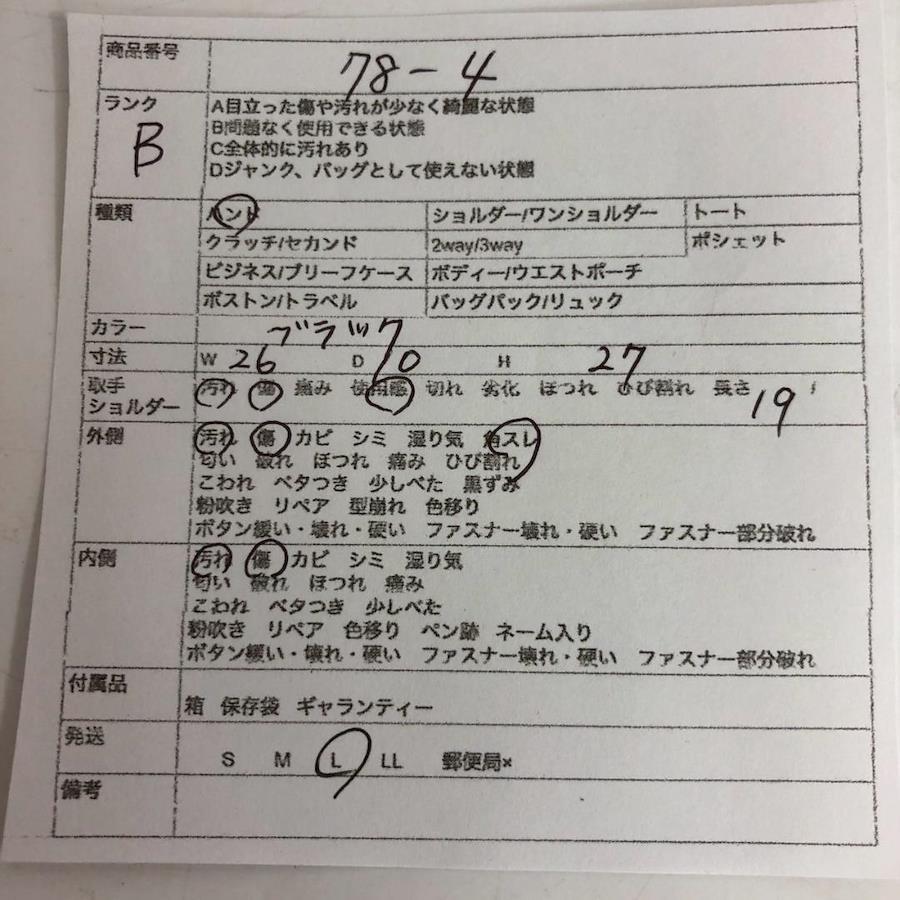 商品番号 78-4
ランク A目立った傷や汚れが少なく綺麗な状態
B B問題なく使用できる状態
C全体的に汚れあり
Dジャンク、バッグとして使えない状態
種類 ハンド ショルダー/ワンショルダー トート
クラッチ/セカンド 2way/3way ポシェット
ビジネス/ブリーフケース ボディー/ウエストポーチ
ボストン/トラベル バッグパック/リュック
カラー ブラック
寸法 W 26 D 10 H 27
取手 汚れ 傷 痛み 使用感 切れ 劣化 ほつれ ひび割れ 長さ 19
ショルダー
外側 汚れ 傷 カビ シミ 湿り気 角スレ
匂い 破れ ほつれ 痛み ひび割れ
こわれ ベタつき 少しべた 黒ずみ
粉吹き リペア 型崩れ 色移り
ボタン緩い・壊れ・硬い ファスナー壊れ・硬い ファスナー部分破れ
内側 汚れ 傷 カビ シミ 湿り気
匂い 破れ ほつれ 痛み
こわれ ベタつき 少しべた
粉吹き リペア 色移り ペン跡 ネーム入り
ボタン緩い・壊れ・硬い ファスナー壊れ・硬い ファスナー部分破れ
付属品 箱 保存袋 ギャランティー
発送 S M L LL 郵便局×
備考